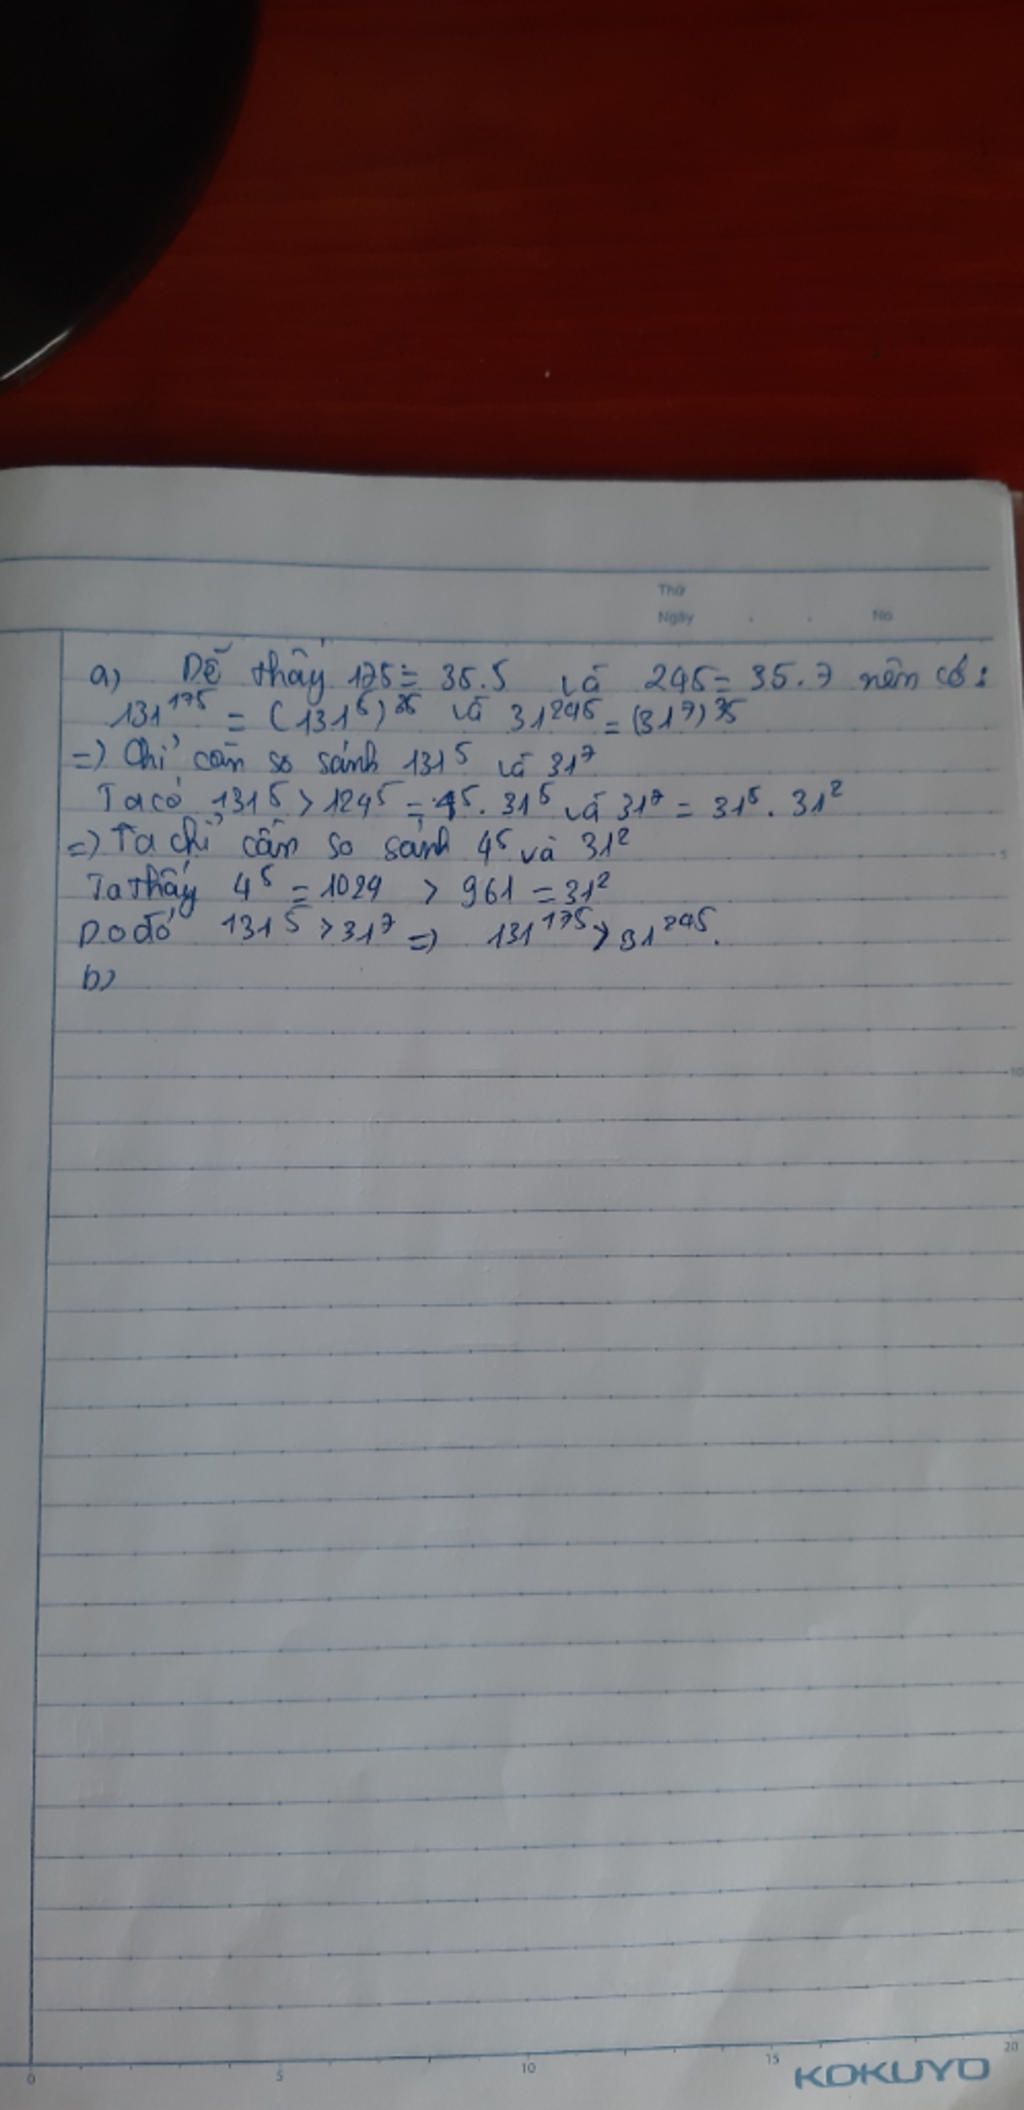 Thứ
Ngày . . No
a) Dễ thấy 175 = 35.5 và 245 = 35.7 nên có:
131^175 = (131^5)^35 và 31^245 = (31^7)^35
=) Chỉ cần so sánh 131^5 và 31^7
Ta có 131^5 > 124^5 = 4^5. 31^5 và 31^7 = 31^5. 31^2
=) Ta chỉ cần so sánh 4^5 và 31^2
Ta thấy 4^5 = 1024 > 961 = 31^2
Do đó 131^5 > 31^7 =) 131^175 > 31^245.
b)
5
10
0 5 10 15 20
KOKUYO